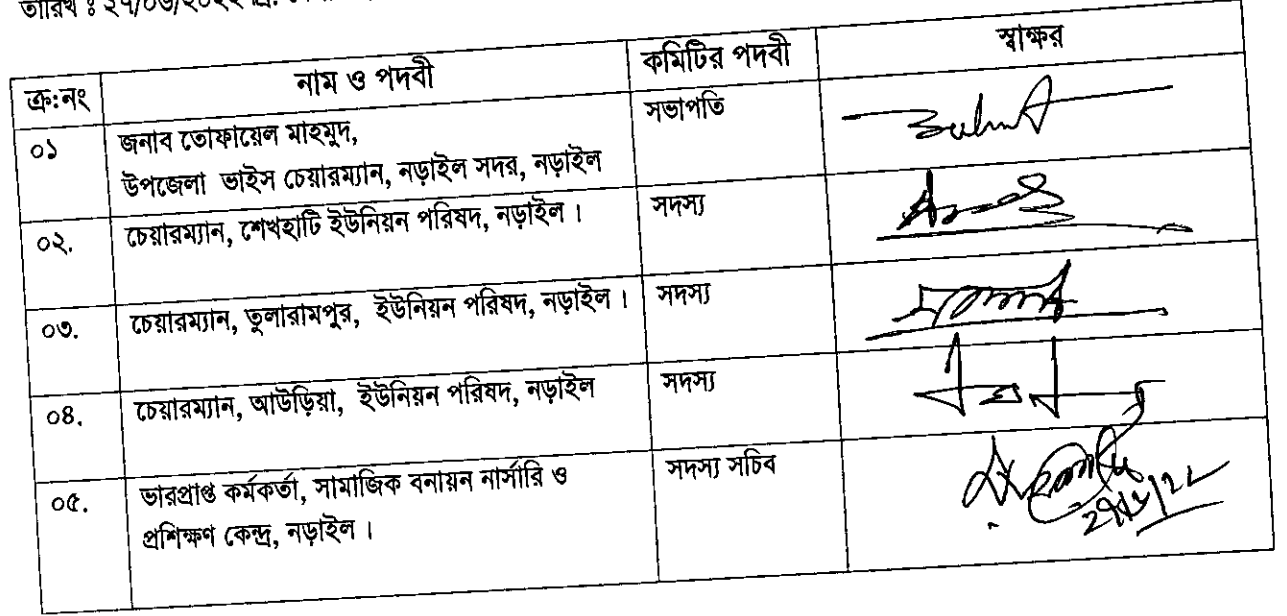 তারিখ ঃ ২৭/০৬/২০২২
ক্র:নং নাম ও পদবী কমিটির পদবী স্বাক্ষর
০১ জনাব তোফায়েল মাহমুদ, সভাপতি
উপজেলা ভাইস চেয়ারম্যান, নড়াইল সদর, নড়াইল
০২. চেয়ারম্যান, শেখহাটি ইউনিয়ন পরিষদ, নড়াইল । সদস্য
০৩. চেয়ারম্যান, তুলারামপুর, ইউনিয়ন পরিষদ, নড়াইল । সদস্য
০৪. চেয়ারম্যান, আউড়িয়া, ইউনিয়ন পরিষদ, নড়াইল সদস্য
০৫. ভারপ্রাপ্ত কর্মকর্তা, সামাজিক বনায়ন নার্সারি ও সদস্য সচিব
প্রশিক্ষণ কেন্দ্র, নড়াইল ।